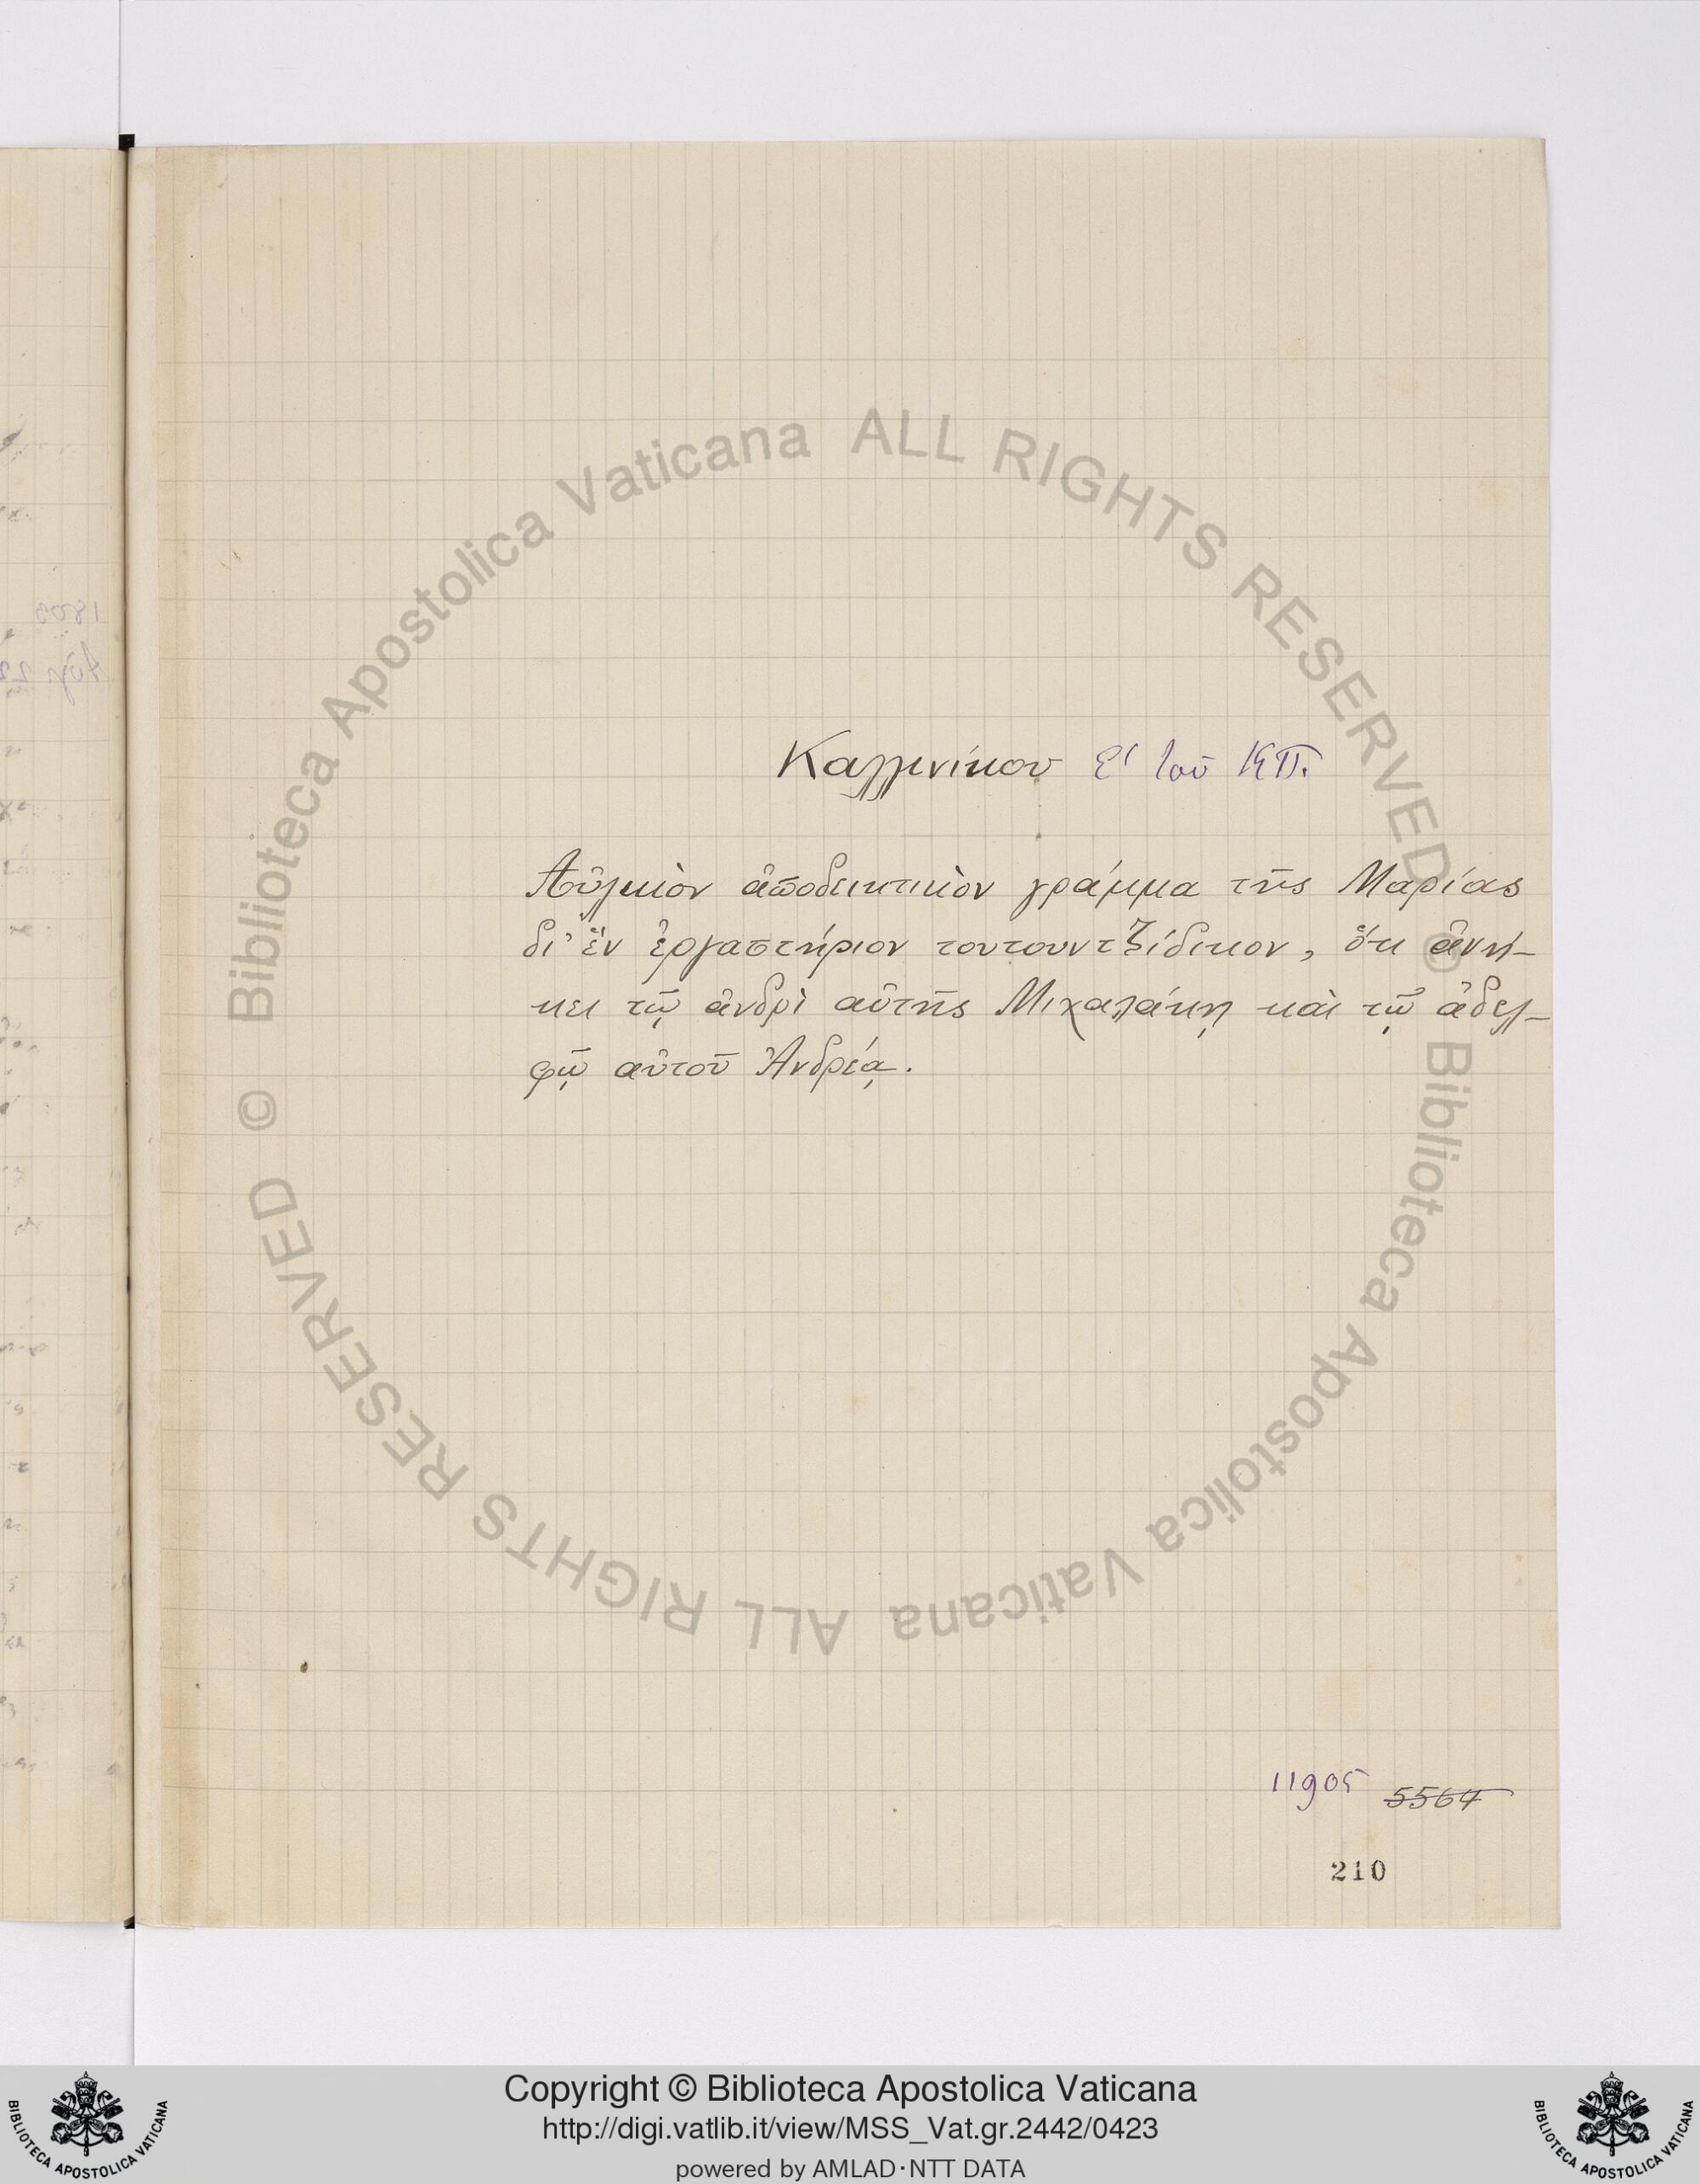 Καλλινίκου Ε' τοῦ ΚΠ.
Αὐλικὸν ἀποδεικτικὸν γράμμα τῆς Μαρίας
δι' ἓν ἐργαστήριον τουτουντζίδικον, ὅτι ἀνή-
κει τῷ ἀνδρὶ αὐτῆς Μιχαλάκῃ καὶ τῷ ἀδελ-
φῷ αὐτοῦ Ἀνδρέᾳ.
11905 5564
210
© Biblioteca Apostolica Vaticana ALL RIGHTS RESERVED
© Biblioteca Apostolica Vaticana ALL RIGHTS RESERVED
Copyright © Biblioteca Apostolica Vaticana
http://digi.vatlib.it/view/MSS_Vat.gr.2442/0423
powered by AMLAD·NTT DATA
BIBLIOTECA APOSTOLICA VATICANA
BIBLIOTECA APOSTOLICA VATICANA